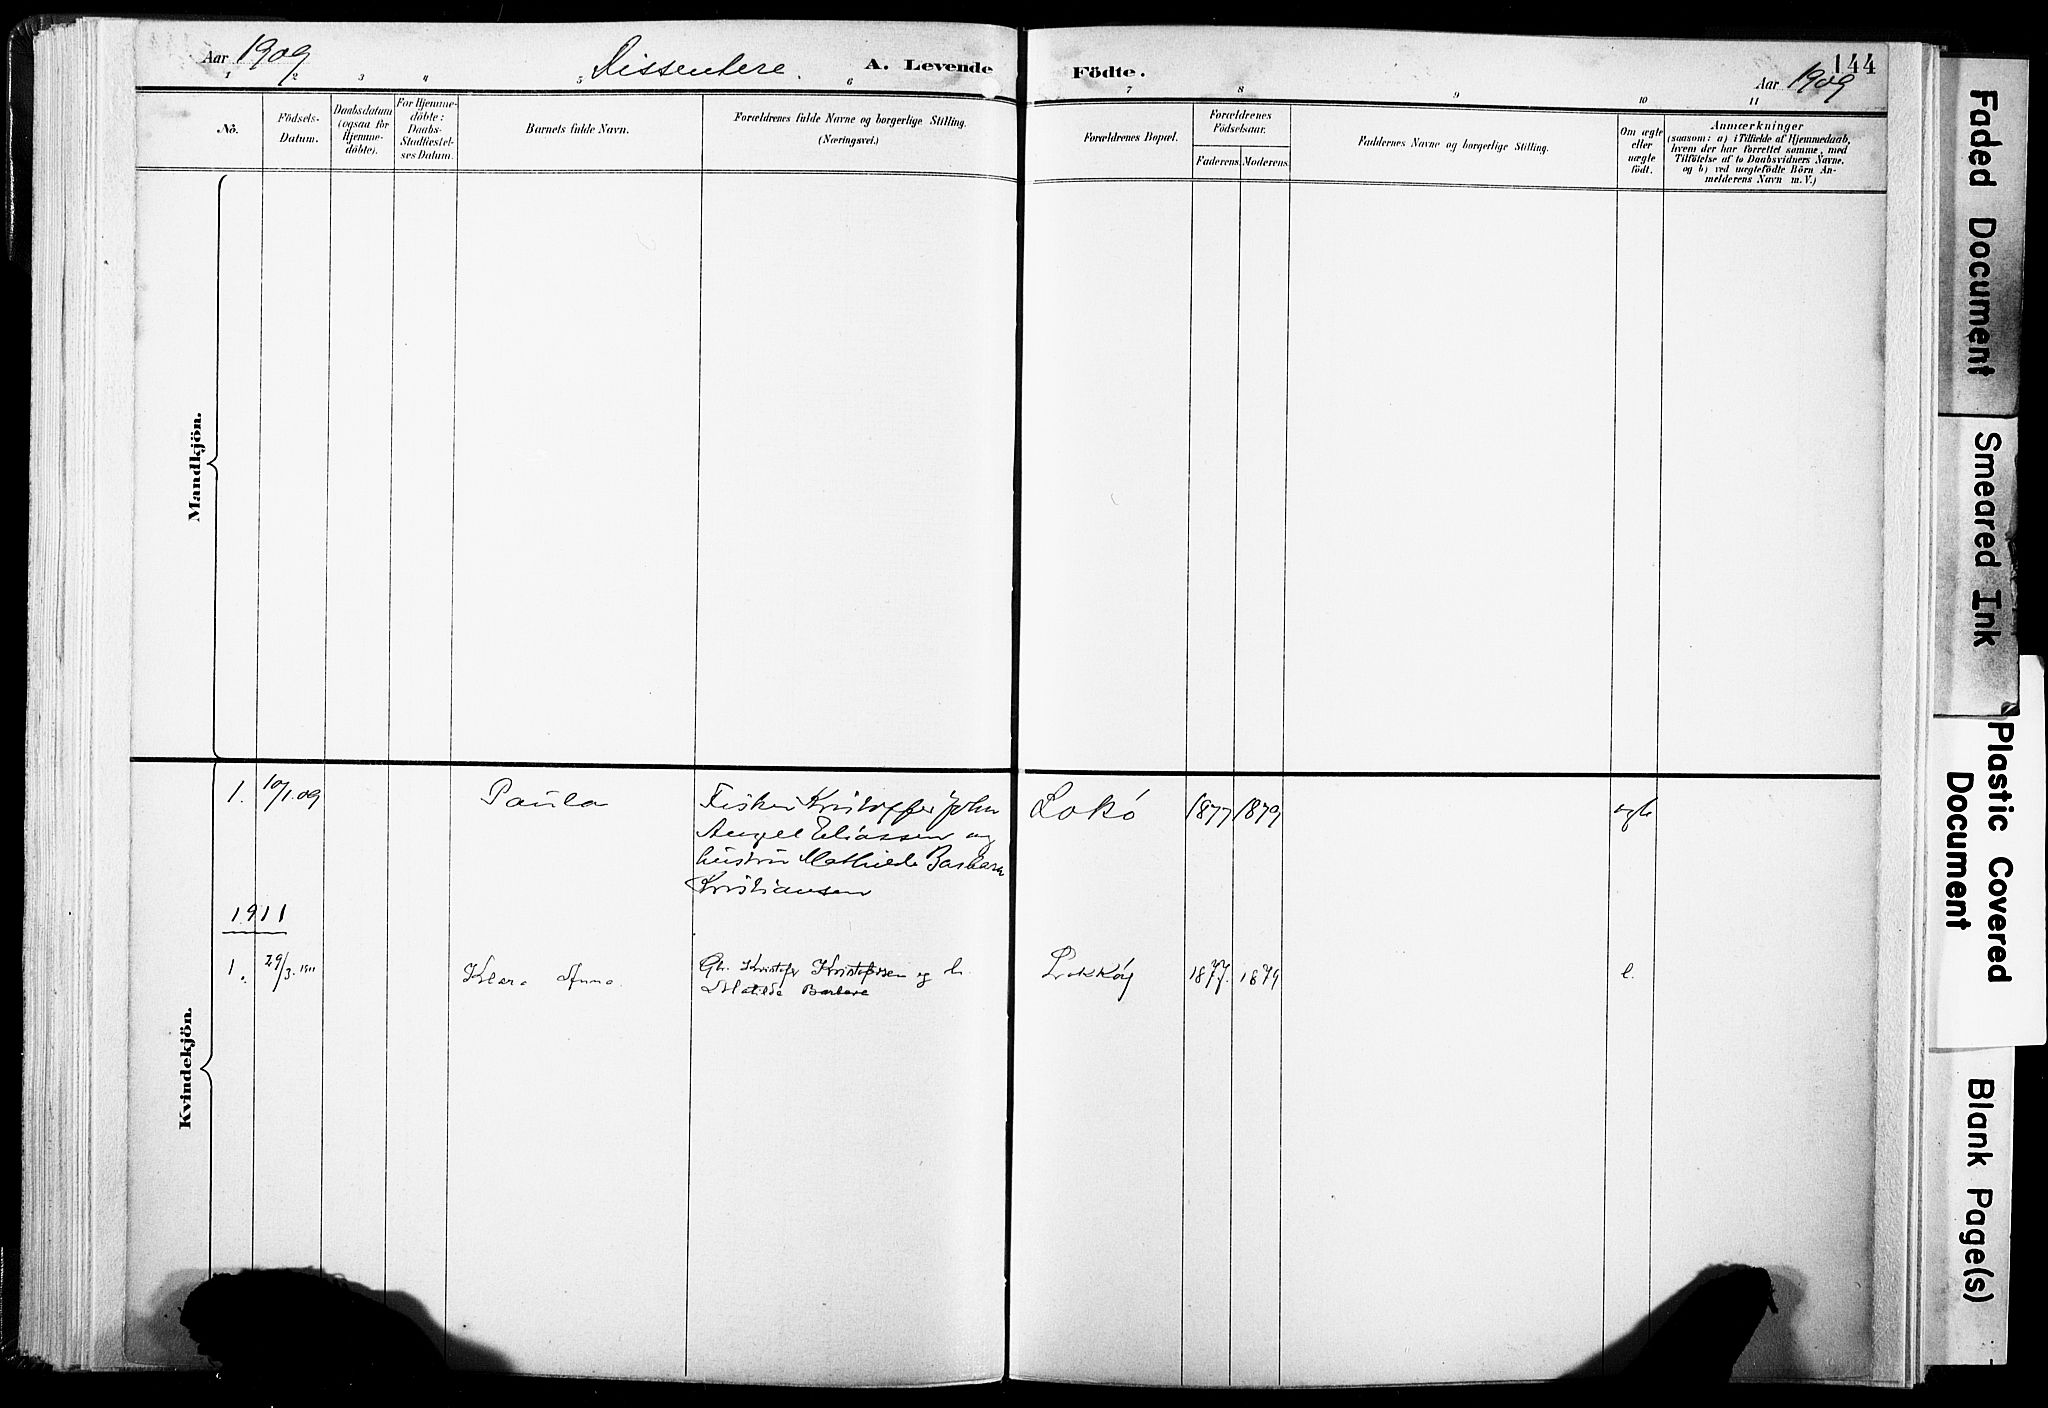 Aar 1909
Dissentere.
A. Levende
Födte.
144
Aar 1909
1 2 3 4 5 6 7 8 9 10 11
No.
Födsels-
Datum.
Daabsdatum
(ogsaa for
Hjemme-
döbte).
For Hjemme-
döbte:
Daabs-
Stadfæstel-
ses Datum.
Barnets fulde Navn.
Forældrenes fulde Navne og borgerlige Stilling.
(Næringsvei.)
Forældrenes Bopæl.
Forældrenes
Födselsaar.
Faderens. Moderens.
Faddernes Navne og borgerlige Stilling.
Om ægte
eller
uægte
födt.
Anmærkninger
(saasom: a) i Tilfælde af Hjemmedaab,
hvem der har forrettet samme, med
Tilföielse af to Daabsvidners Navne.
og b) ved uægtefödte Börn An-
melderens Navn m. V.)
Mandkjön.
Kvindekjön.
1. 10/1.09 Paula Fisker Kristoffer John Lokö 1877 1879 ægte
Angel Eliassen og
hustru Mathilde Barbara
Kristiansen
1911
1. 29/3.1911 Klara Anna. Gb. Kristofer Kristofersen og h. Lokköy 1877. 1879 e.
Matilde Barbara
Faded Document
Smeared Ink
Plastic Covered
Document
Blank Page(s)